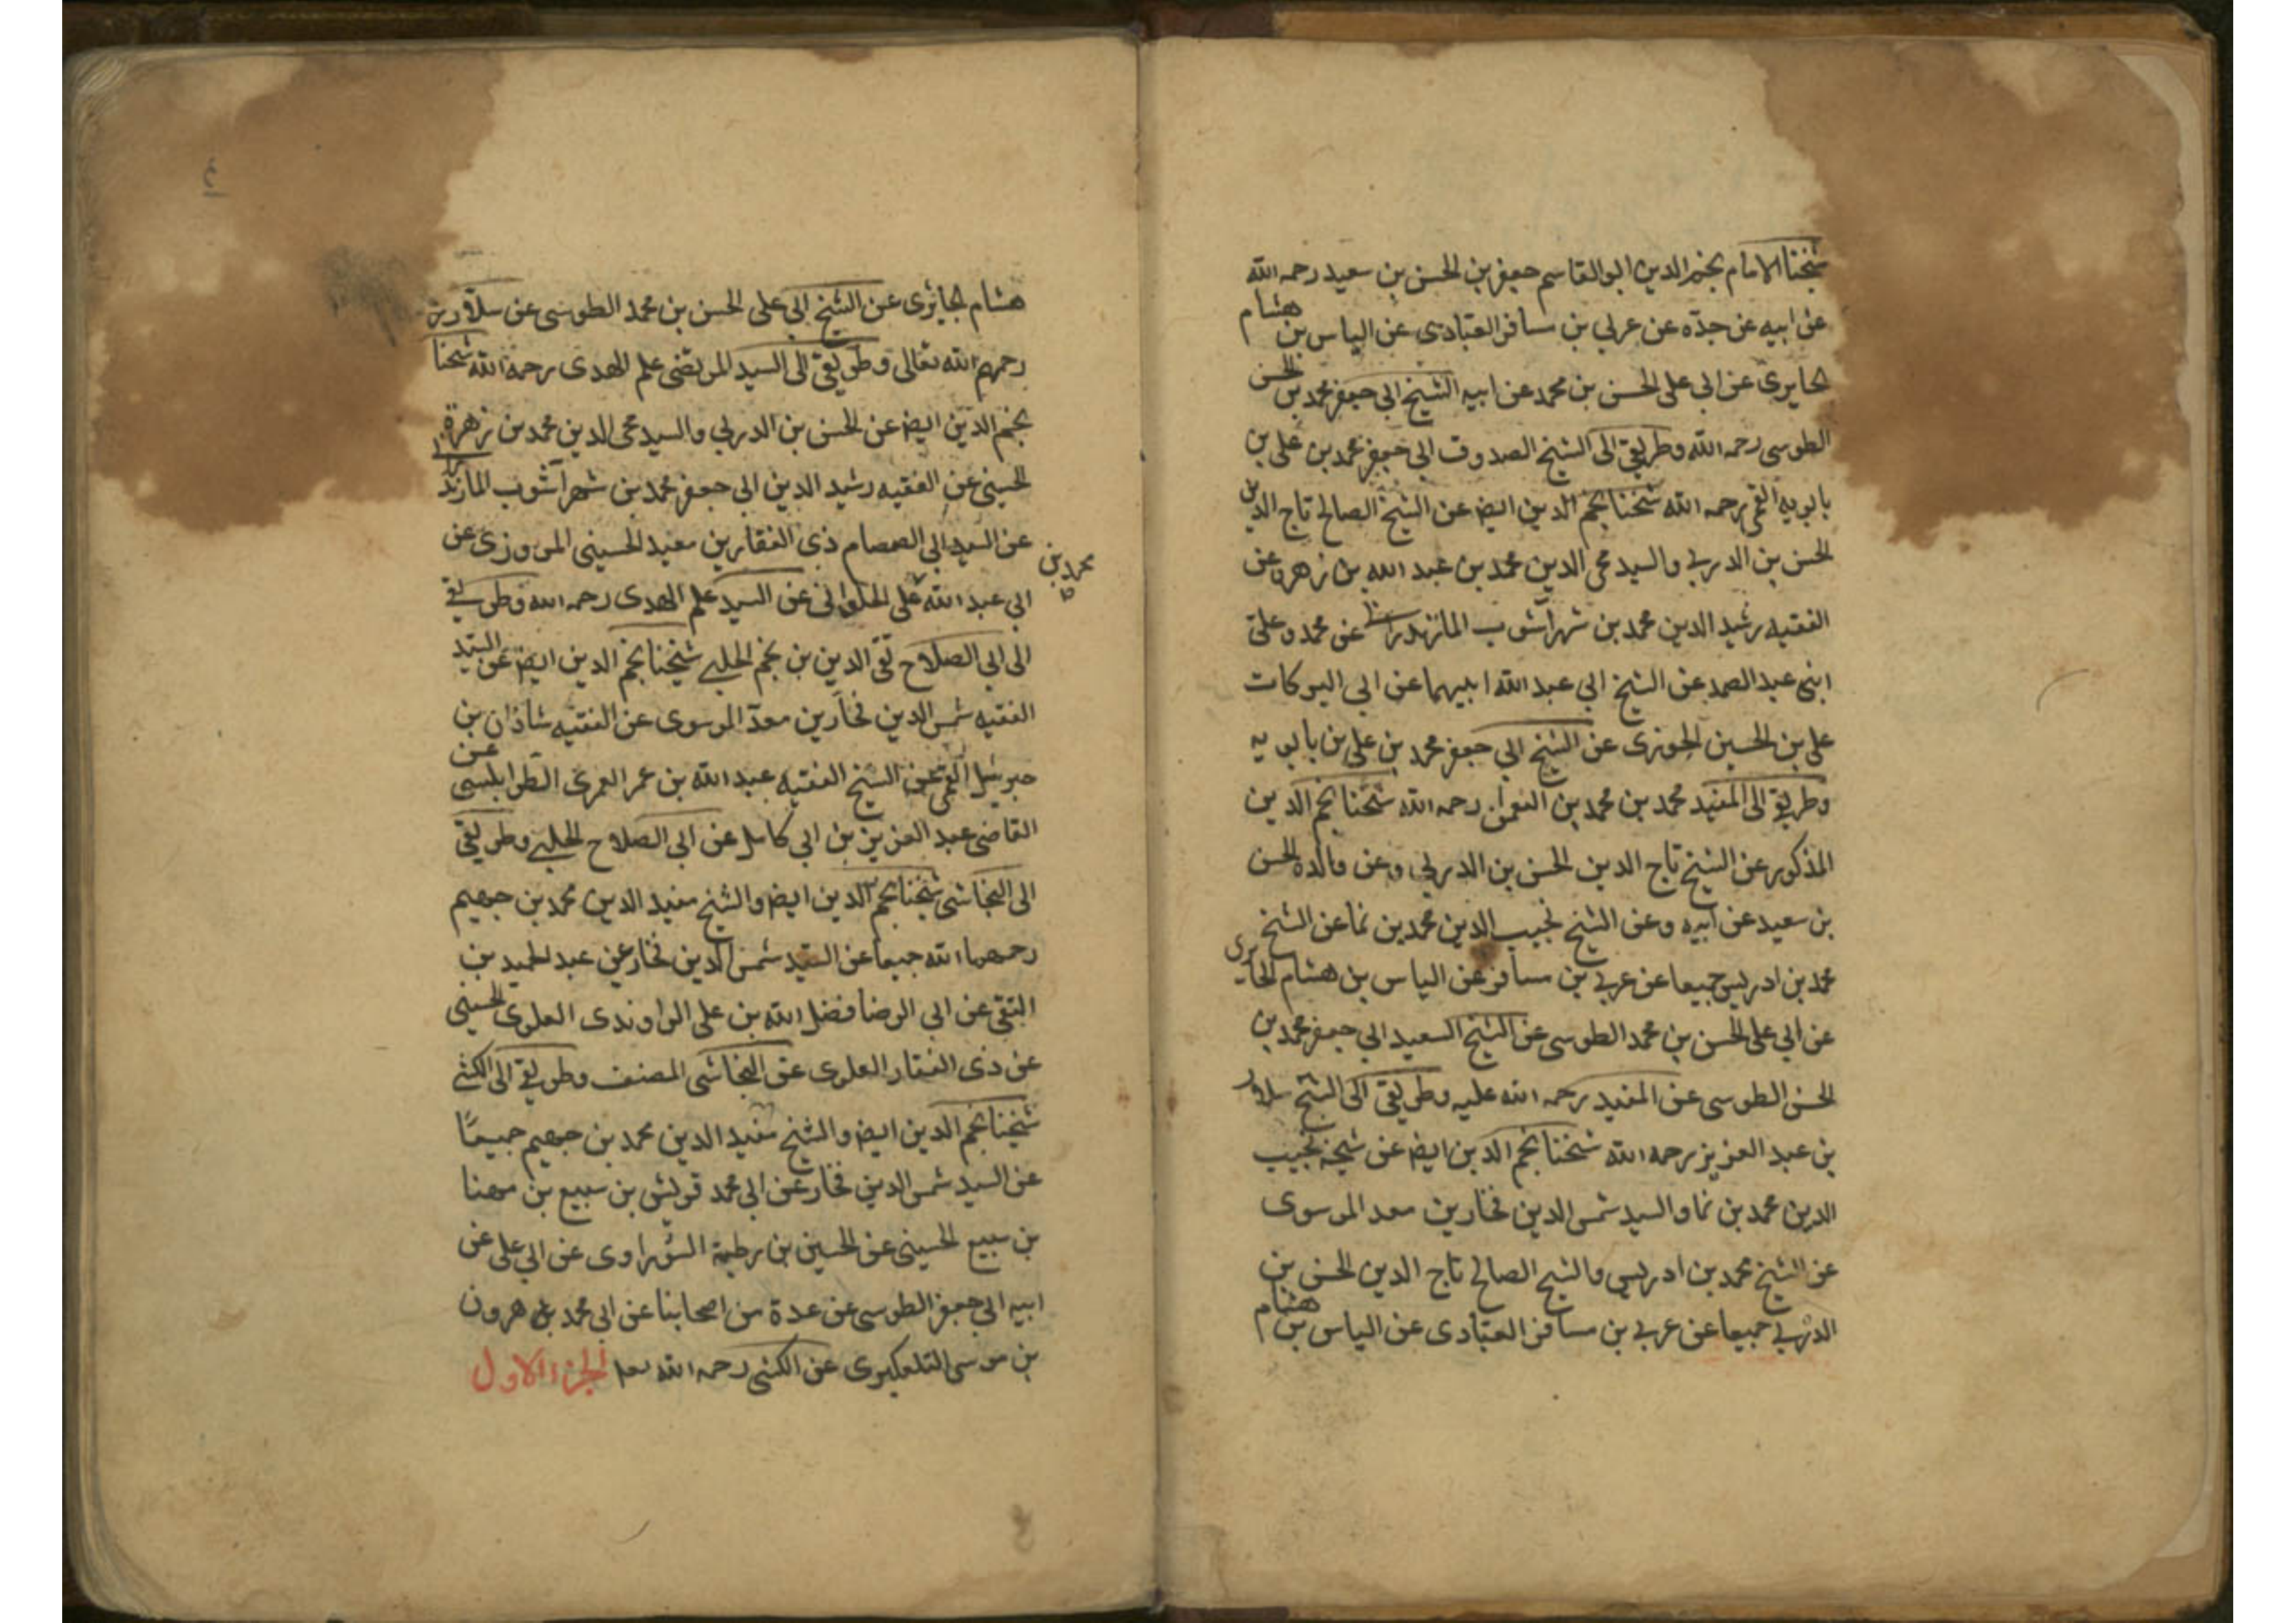 شيخنا الامام نجم الدين ابو القاسم جعفر بن الحسن بن سعيد رحمه الله
عن ابيه عن جده عن عربي بن مسافر العبادى عن الياس بن هشام
الحايرى عن ابي على الحسن بن محمد عن ابيه الشيخ ابي جعفر محمد بن الحسن
الطوسى رحمه الله وطريقي الى الشيخ الصدوق ابي جعفر محمد بن على بن
بابويه القمى رحمه الله شيخنا نجم الدين ايضا عن الشيخ الصالح تاج الدين
الحسن بن الدربي والسيد محى الدين محمد بن عبد الله بن زهرة عن
الفقيه رشيد الدين محمد بن شهرآشوب المازندرانى عن محمد وعلى
ابني عبد الصمد عن الشيخ ابي عبد الله ابيهما عن ابي البركات
على بن الحسين الجوزى عن الشيخ ابي جعفر محمد بن على بن بابويه
وطريقي الى المفيد محمد بن محمد بن النعمن رحمه الله شيخنا نجم الدين
المذكور عن الشيخ تاج الدين الحسن بن الدربي وعن والده الحسن
بن سعيد عن ابيه وعن الشيخ نجيب الدين محمد بن نما عن الشيخ
محمد بن ادريس جميعا عن عربي بن مسافر عن الياس بن هشام الحايرى
عن ابي على الحسن بن محمد الطوسى عن الشيخ السعيد ابي جعفر محمد بن
الحسن الطوسى عن المفيد رحمه الله عليه وطريقي الى الشيخ سلار
بن عبد العزيز رحمه الله شيخنا نجم الدين ايضا عن شيخه نجيب
الدين محمد بن نما والسيد شمس الدين فخار بن معد الموسوى
عن الشيخ محمد بن ادريس والشيخ الصالح تاج الدين الحسن بن
الدربي جميعا عن عربي بن مسافر العبادى عن الياس بن هشام
٤
هشام الحايرى عن الشيخ ابي على الحسن بن محمد الطوسى عن سلار
رحمهم الله تعالى وطريقي الى السيد المرتضى علم الهدى رحمه الله شيخنا
نجم الدين ايضا عن الحسن بن الدربي والسيد محى الدين محمد بن زهرة
الحسينى عن الفقيه رشيد الدين ابي جعفر محمد بن شهرآشوب المازندرانى
عن السيد ابي الصمصام ذى الفقار بن معبد الحسينى المروزى عن
محمد بن
ابي عبد الله على الحلوانى عن السيد علم الهدى رحمه الله وطريقي
الى ابي الصلاح تقي الدين بن نجم الحلبي شيخنا نجم الدين ايضا عن السيد
الفقيه شمس الدين فخار بن معد الموسوى عن الفقيه شاذان بن
جبرئيل القمى عن الشيخ الفقيه عبد الله بن عمر العمرى الطرابلسى عن
القاضى عبد العزيز بن ابي كامل عن ابي الصلاح الحلبي وطريقي
الى النجاشى شيخنا نجم الدين ايضا والشيخ مفيد الدين محمد بن جهيم
رحمهما الله جميعا عن السيد شمس الدين فخار عن عبد الحميد بن
التقى عن ابي الرضا فضل الله بن على الراوندى العلوى الحسينى
عن ذى الفقار العلوى عن النجاشى المصنف وطريقي الى الكشى
شيخنا نجم الدين ايضا والشيخ مفيد الدين محمد بن جهيم جميعا
عن السيد شمس الدين فخار عن ابي محمد قريش بن سبيع بن مهنا
بن سبيع الحسينى عن الحسين بن رطبة السوراوى عن ابي على عن
ابيه ابي جعفر الطوسى عن عدة من اصحابنا عن ابي محمد هرون
بن موسى التلعكبرى عن الكشى رحمه الله الجزء الاول